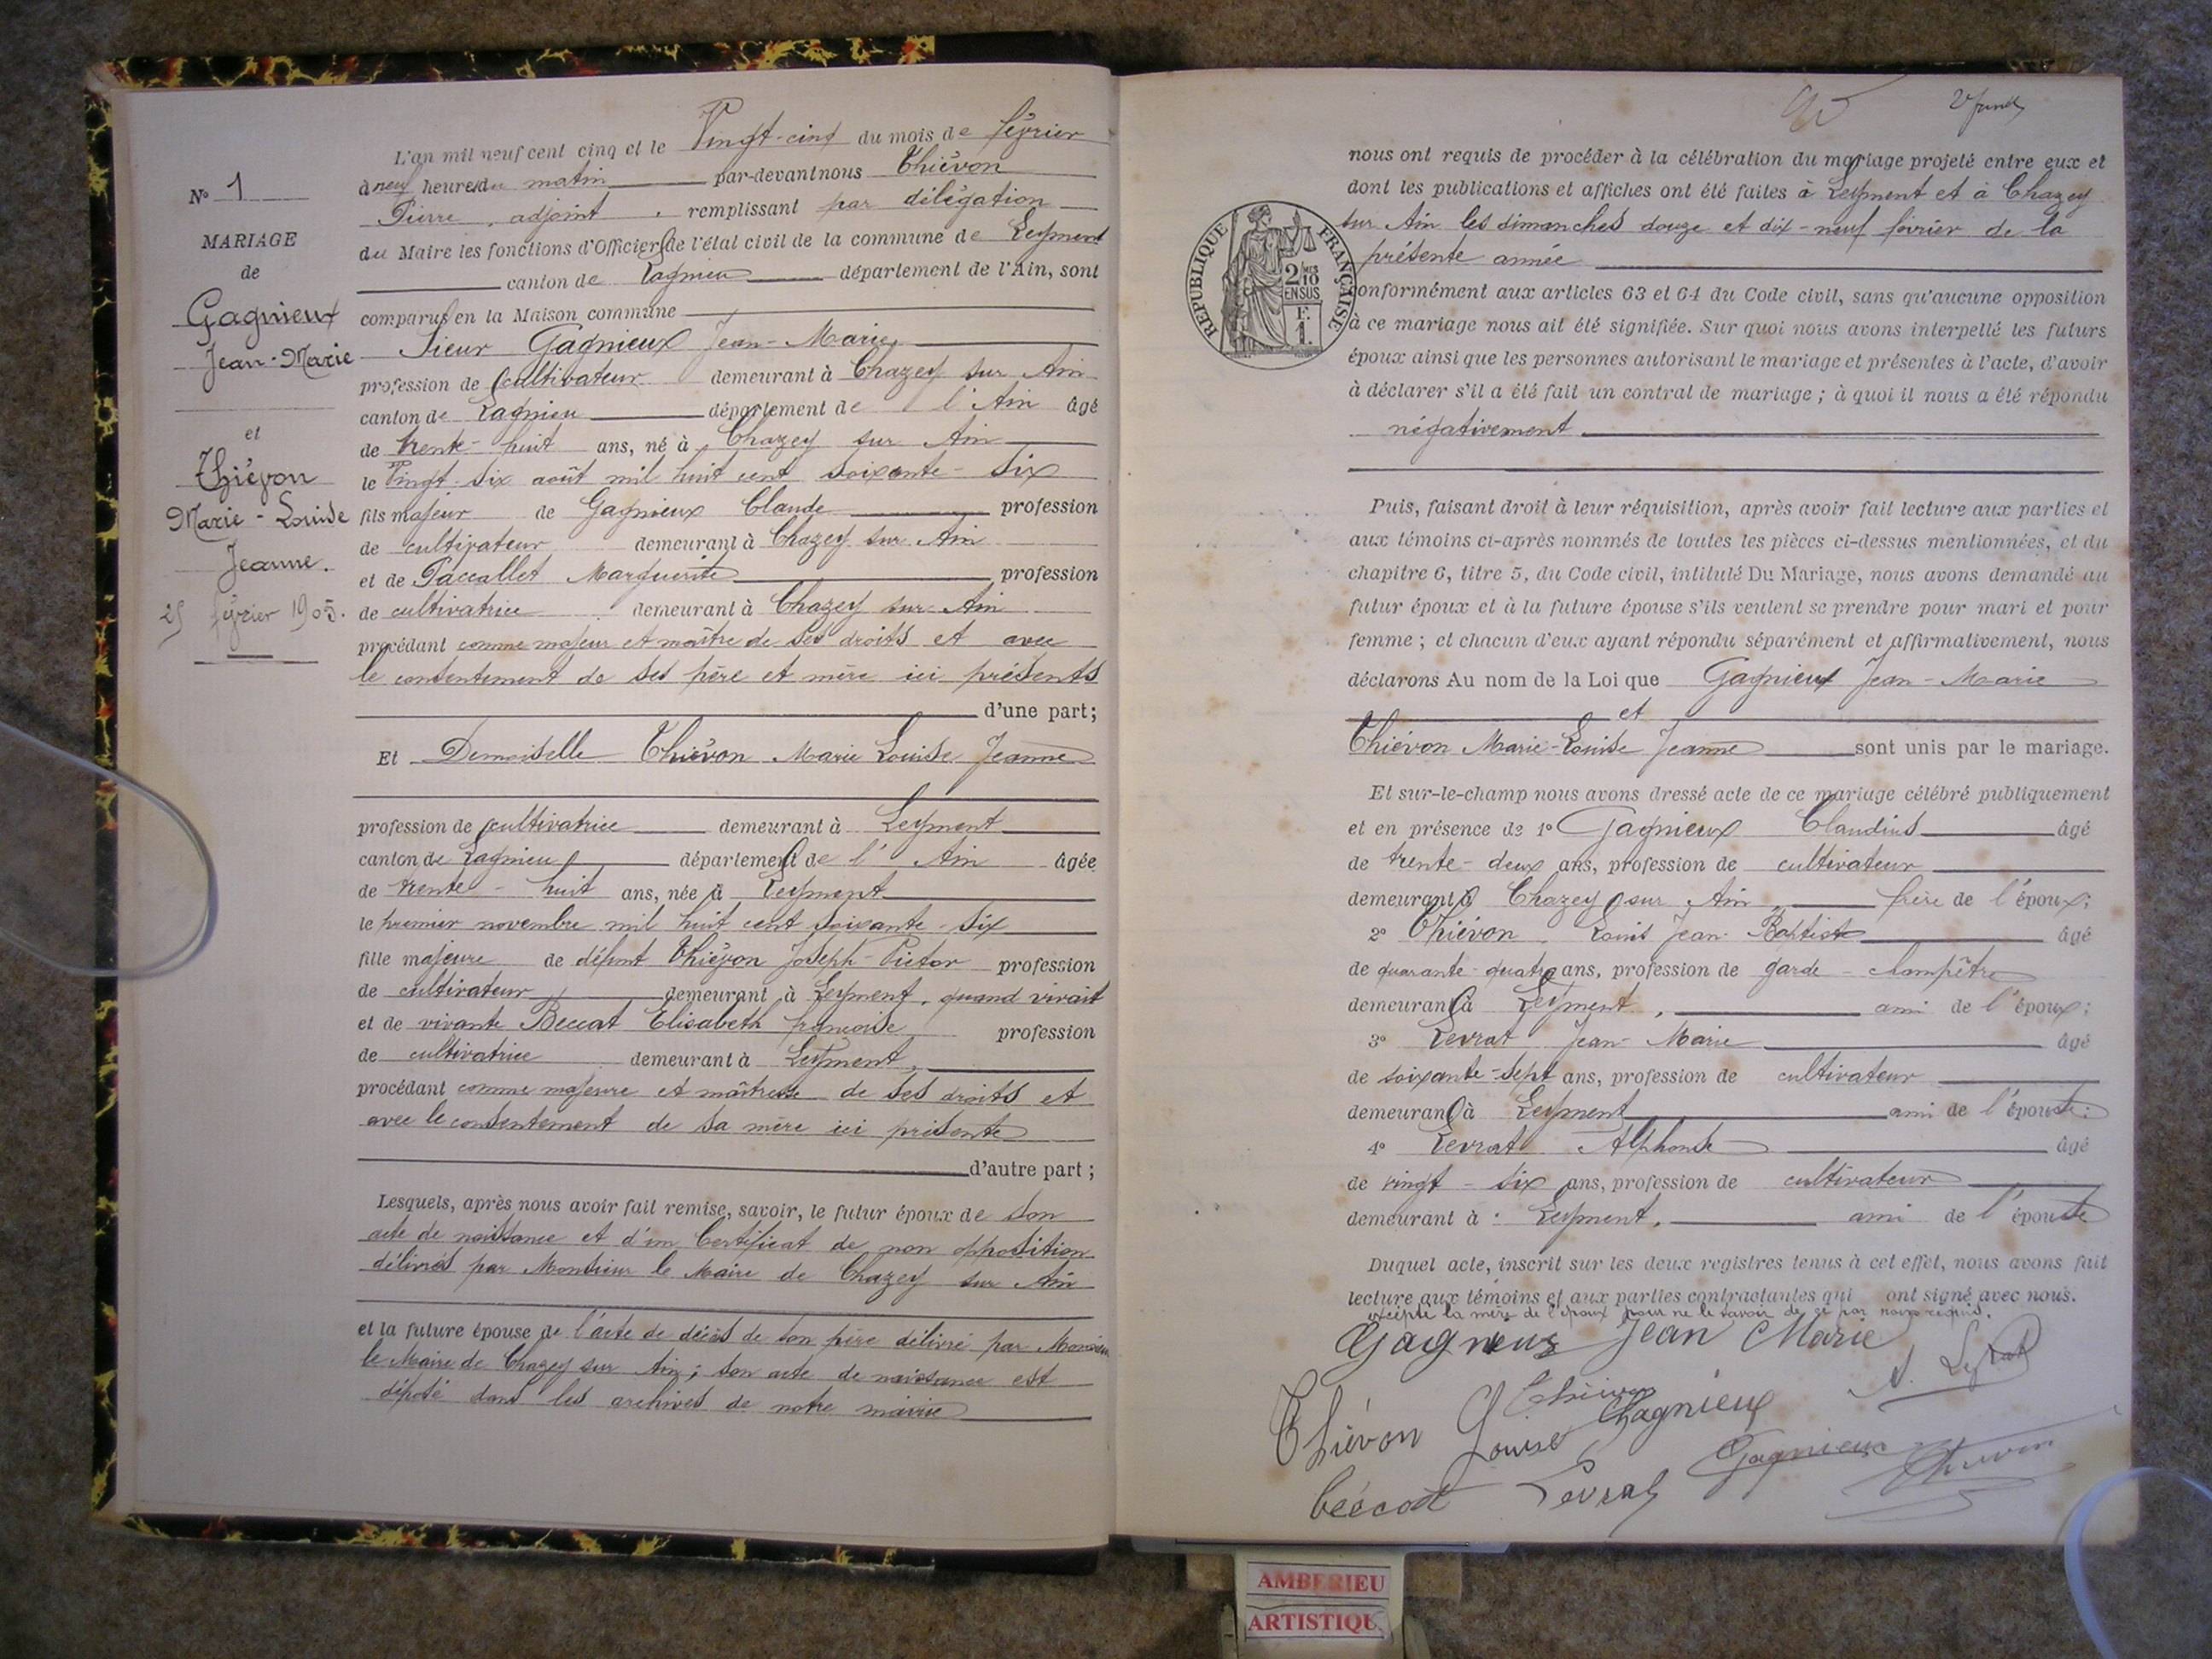 N° 1
MARIAGE
de
Gagnieux
Jean-Marie
et
Thiévon
Marie-Louise
Jeanne.
25 février 1905.
L'an mil neuf cent cinq et le Vingt-cinq du mois de février
à neuf heures du matin par-devant nous Thiévon
Pierre, adjoint, remplissant par délégation
du Maire les fonctions d'Officier de l'état civil de la commune de Leyment
canton de Lagnieu département de l'Ain, sont
comparus en la Maison commune
Sieur Gagnieux Jean-Marie,
profession de cultivateur demeurant à Chazey sur Ain
canton de Lagnieu département de l'Ain âgé
de trente-huit ans, né à Chazey sur Ain
le Vingt-six août mil huit cent soixante-six
fils majeur de Gagnieux Claude profession
de cultivateur demeurant à Chazey sur Ain
et de Paccallet Marguerite profession
de cultivatrice demeurant à Chazey sur Ain
procédant comme majeur et maître de ses droits et avec
le consentement de ses père et mère ici présents
d'une part;
Et Demoiselle Thiévon Marie Louise Jeanne
profession de cultivatrice demeurant à Leyment
canton de Lagnieu département de l'Ain âgée
de trente-huit ans, née à Leyment
le premier novembre mil huit cent soixante-six
fille majeure de défunt Thiévon Joseph-Victor profession
de cultivateur demeurant à Leyment, quand vivait
et de vivante Beccat Elisabeth françoise profession
de cultivatrice demeurant à Leyment,
procédant comme majeure et maîtresse de ses droits et
avec le consentement de sa mère ici présente
d'autre part;
Lesquels, après nous avoir fait remise, savoir, le futur époux de son
acte de naissance et d'un Certificat de non opposition
délivrés par Monsieur le Maire de Chazey sur Ain
et la future épouse de l'acte de décès de son père délivré par Monsieur
le Maire de Chazey sur Ain; son acte de naissance est
déposé dans les archives de notre mairie
nous ont requis de procéder à la célébration du mariage projeté entre eux et
dont les publications et affiches ont été faites à Leyment et à Chazey
sur Ain les dimanches douze et dix-neuf février de la
présente année
RÉPUBLIQUE FRANÇAISE
2/10
EN SUS
F.
1.
conformément aux articles 63 et 64 du Code civil, sans qu'aucune opposition
à ce mariage nous ait été signifiée. Sur quoi nous avons interpellé les futurs
époux ainsi que les personnes autorisant le mariage et présentes à l'acte, d'avoir
à déclarer s'il a été fait un contrat de mariage; à quoi il nous a été répondu
négativement
Puis, faisant droit à leur réquisition, après avoir fait lecture aux parties et
aux témoins ci-après nommés de toutes les pièces ci-dessus mentionnées, et du
chapitre 6, titre 5, du Code civil, intitulé Du Mariage, nous avons demandé au
futur époux et à la future épouse s'ils veulent se prendre pour mari et pour
femme; et chacun d'eux ayant répondu séparément et affirmativement, nous
déclarons Au nom de la Loi que Gagnieux Jean-Marie
et
Thiévon Marie-Louise Jeanne sont unis par le mariage.
Et sur-le-champ nous avons dressé acte de ce mariage célébré publiquement
et en présence de 1° Gagnieux Claudius âgé
de trente-deux ans, profession de cultivateur
demeurant à Chazey sur Ain, frère de l'époux;
2° Thiévon Louis Jean-Baptiste âgé
de quarante-quatre ans, profession de garde-champêtre
demeurant à Leyment, ami de l'époux;
3° Levrat Jean-Marie âgé
de soixante-sept ans, profession de cultivateur
demeurant à Leyment ami de l'épouse;
4° Levrat Alphonse âgé
de vingt-six ans, profession de cultivateur
demeurant à Leyment, ami de l'épouse
Duquel acte, inscrit sur les deux registres tenus à cet effet, nous avons fait
lecture aux témoins et aux parties contractantes qui ont signé avec nous.
excepté la mère de l'époux pour ne le savoir de ce par nous requis.
Gagneux Jean Marie
A. Levrat
Thiévon
Thiévon Louise Gagnieux
Gagnieux Thiévon
beccat Levrat
AMBERIEU
ARTISTIQUE